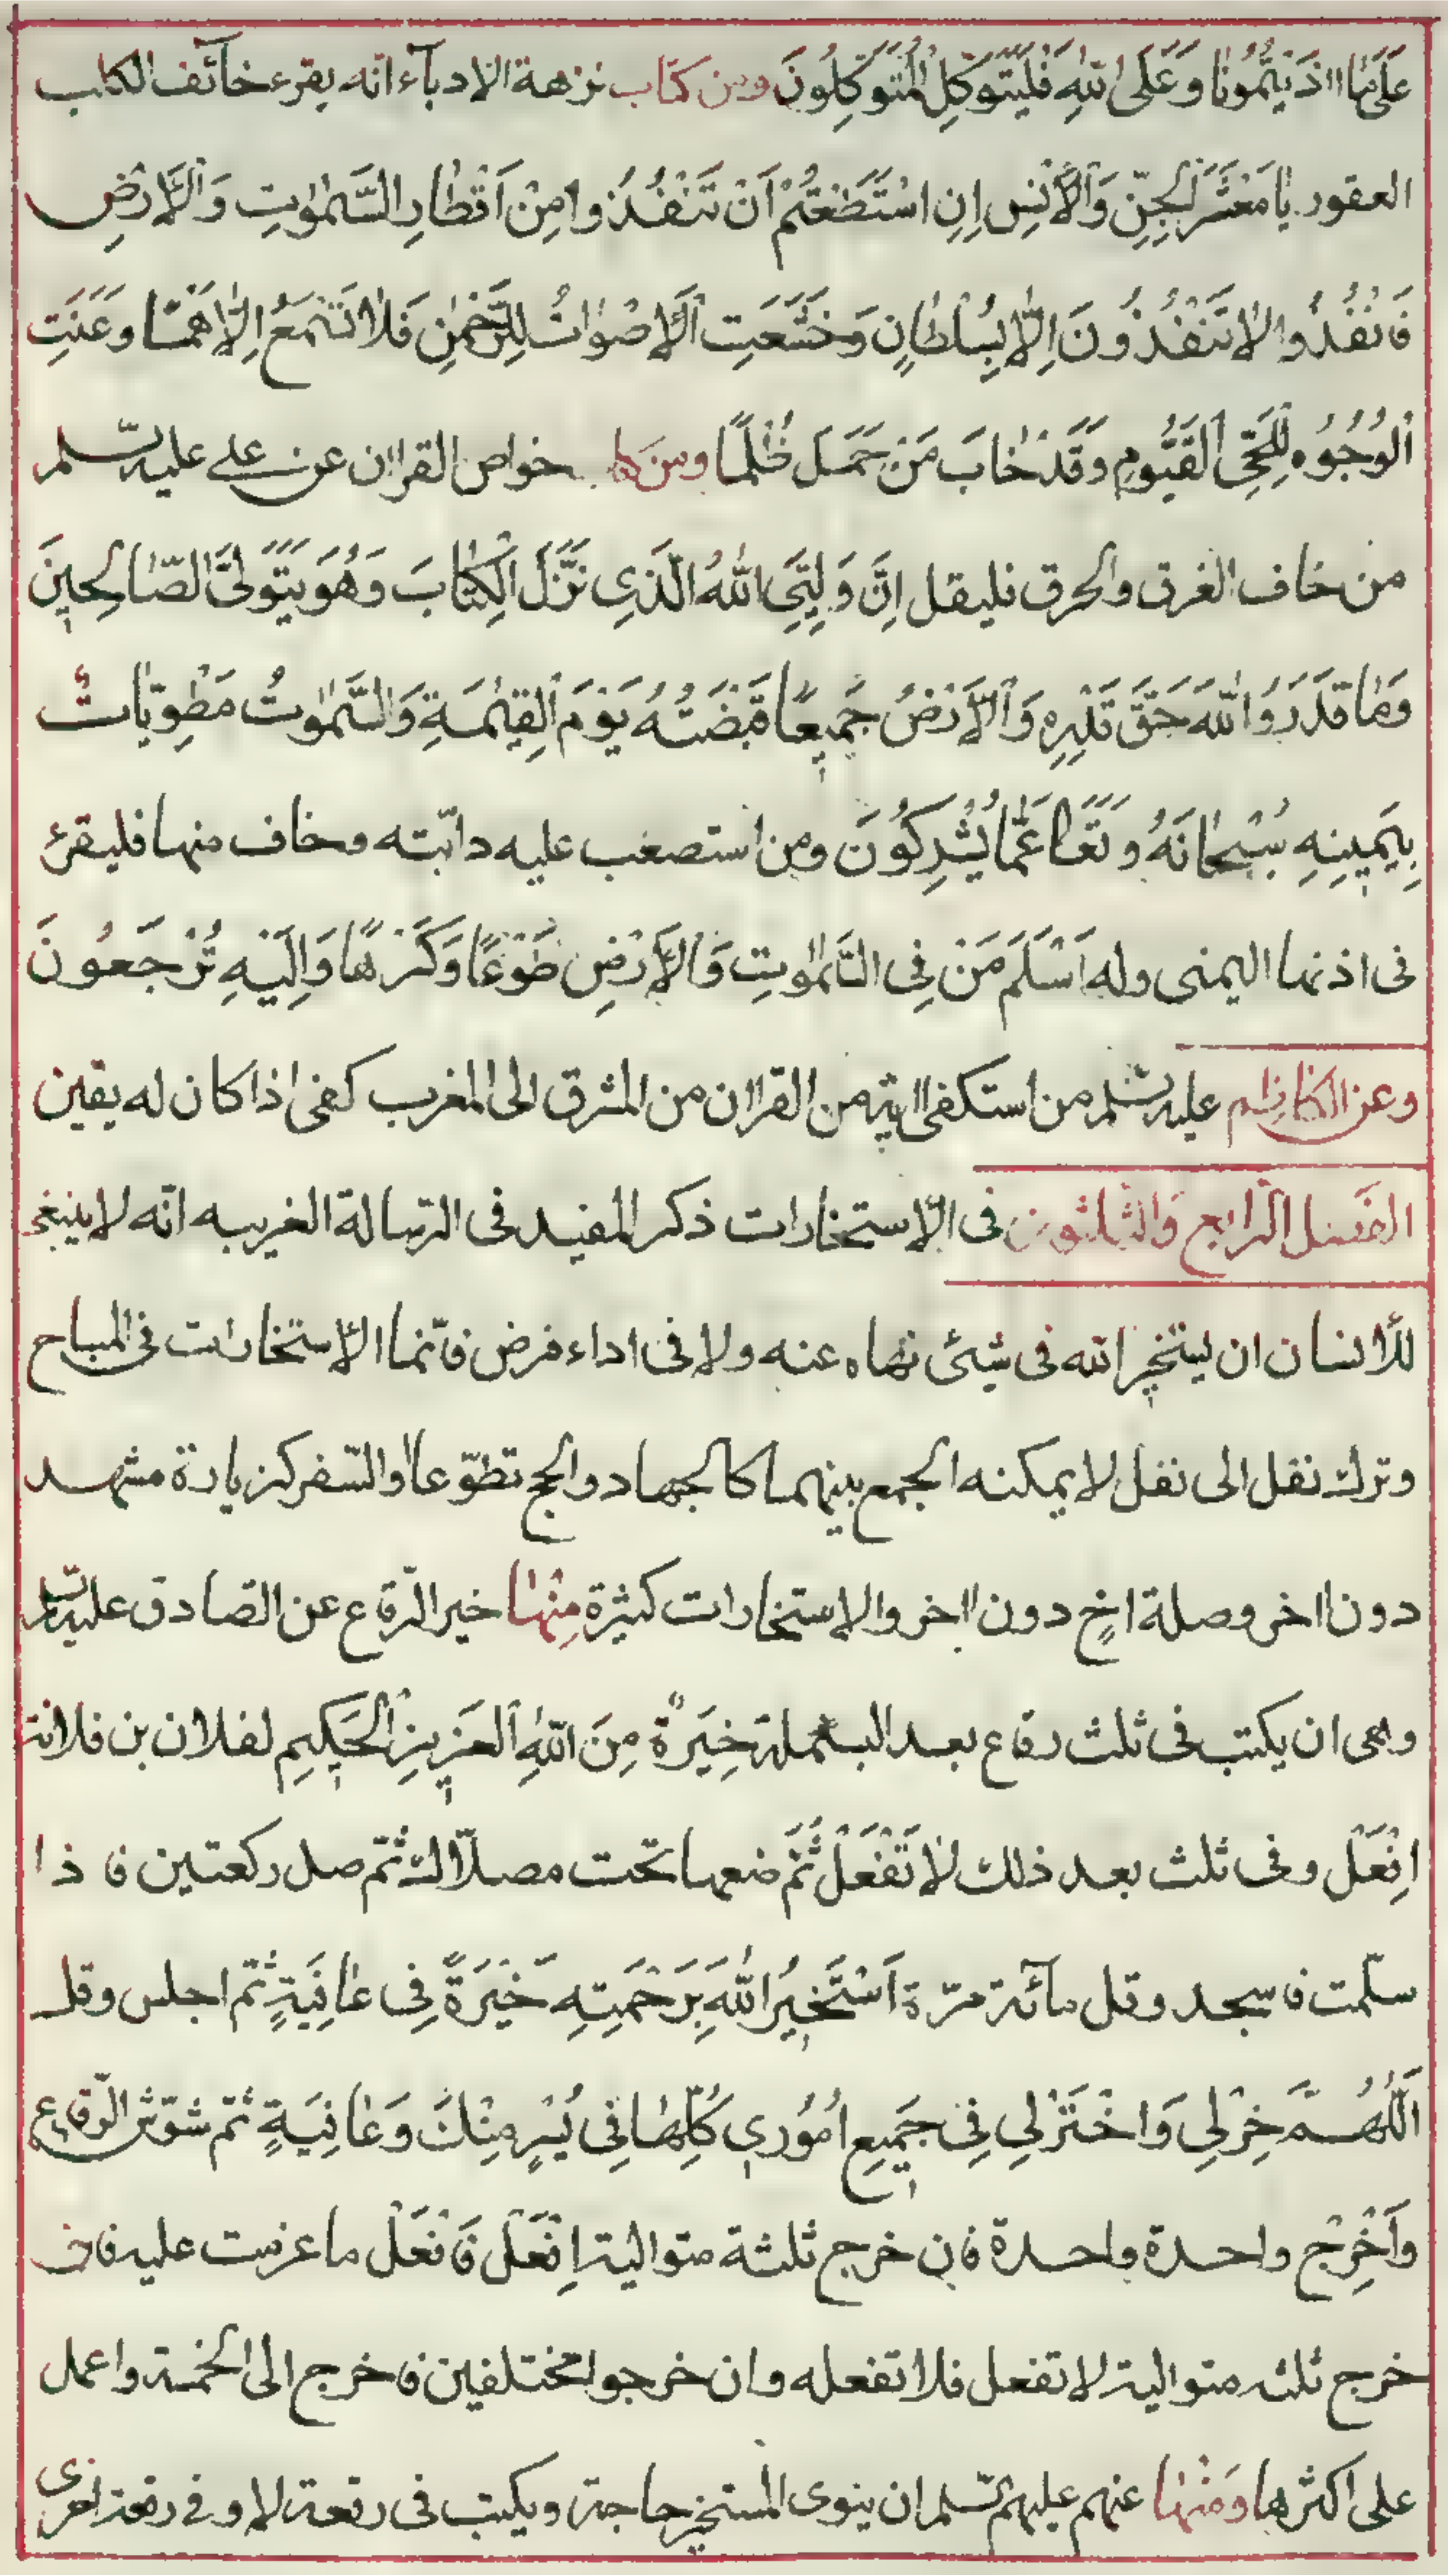 عَلَىٰ مَا اٰذَيْتُمُونَا وَعَلَى اللهِ فَلْيَتَوَكَّلِ الْمُتَوَكِّلُونَ ومن كتاب نزهة الادبآء انه يقرء خآئف الكلب
العقور يَا مَعْشَرَ الْجِنِّ وَالْاِنْسِ اِنِ اسْتَطَعْتُمْ اَنْ تَنْفُذُوا مِنْ اَقْطَارِ السَّمٰوٰتِ وَالْاَرْضِ
فَانْفُذُوا لَا تَنْفُذُونَ اِلَّا بِسُلْطَانٍ وَخَشَعَتِ الْاَصْوَاتُ لِلرَّحْمٰنِ فَلَا تَسْمَعُ اِلَّا هَمْسًا وَعَنَتِ
الْوُجُوهُ لِلْحَيِّ الْقَيُّومِ وَقَدْ خَابَ مَنْ حَمَلَ ظُلْمًا ومن كتاب خواص القراٰن عن علي عليه السّلم
من خاف الغرق والحرق فليقل اِنَّ وَلِيِّيَ اللهُ الَّذِي نَزَّلَ الْكِتَابَ وَهُوَ يَتَوَلَّى الصَّالِحِينَ
وَمَا قَدَرُوا اللهَ حَقَّ قَدْرِهِ وَالْاَرْضُ جَمِيعًا قَبْضَتُهُ يَوْمَ الْقِيٰمَةِ وَالسَّمٰوٰتُ مَطْوِيَّاتٌ
بِيَمِينِهِ سُبْحَانَهُ وَتَعَالٰى عَمَّا يُشْرِكُونَ ومن استصعب عليه دابّته وخاف منها فليقرئ
فى اذنها اليمنى وله اَسْلَمَ مَنْ فِى السَّمٰوٰتِ وَالْاَرْضِ طَوْعًا وَكَرْهًا وَاِلَيْهِ تُرْجَعُونَ
وعن الكاظم عليه السّلم من استكفى باٰية من القراٰن من المشرق الى المغرب كفى اذا كان له يقين
الفصل الرابع والثلثون فى الاستخارات ذكر المفيد فى الرسالة الغريبه انّه لا ينبغى
للانسان ان يستخير الله فى شيئ نهاه عنه ولا فى اداء فرض فانّما الاستخارات فى المباح
وترك نفل الى نفل لا يمكنه الجمع بينهما كالجهاد والحج تطوّعا او السّفر كزيارة مشهد
دون اٰخر وصلة اخٍ دون اٰخر والاستخارات كثيرة مِنْهَا خير الرّقاع عن الصّادق عليه السّلم
وهى ان يكتب فى ثلث رقاع بعد البسملة خِيَرَةٌ مِنَ اللهِ الْعَزِيزِ الْحَكِيمِ لفلان بن فلانة
اِفْعَلْ وفى ثلث بعد ذلك لَا تَفْعَلْ ثُمَّ ضعها تحت مصلّاك ثمّ صل ركعتين فاذا
سلّمت فاسجد وقل مآئة مرّة اَسْتَخِيرُ اللهَ بِرَحْمَتِهِ خِيَرَةً فِى عَافِيَةٍ ثمّ اجلس وقل
اَللّٰهُمَّ خِرْ لِي وَاخْتَرْ لِي فِى جَمِيعِ اُمُورِي كُلِّهَا فِى يُسْرٍ مِنْكَ وَعَافِيَةٍ ثمّ شوّش الرّقاع
وَاَخْرِجْ واحدة واحدة فان خرج ثلثة متوالية اِفْعَلْ فَافْعَلْ ما عزمت عليه فان
خرج ثلثه متوالية لا تفعل فلا تفعله وان خرجوا مختلفين فاخرج الى الخمسة واعمل
على اكثرها وَمِنْهَا عنهم عليهم السّلم ان ينوى المستخير حاجة ويكتب فى رقعة لا وفى رقعة اخرى